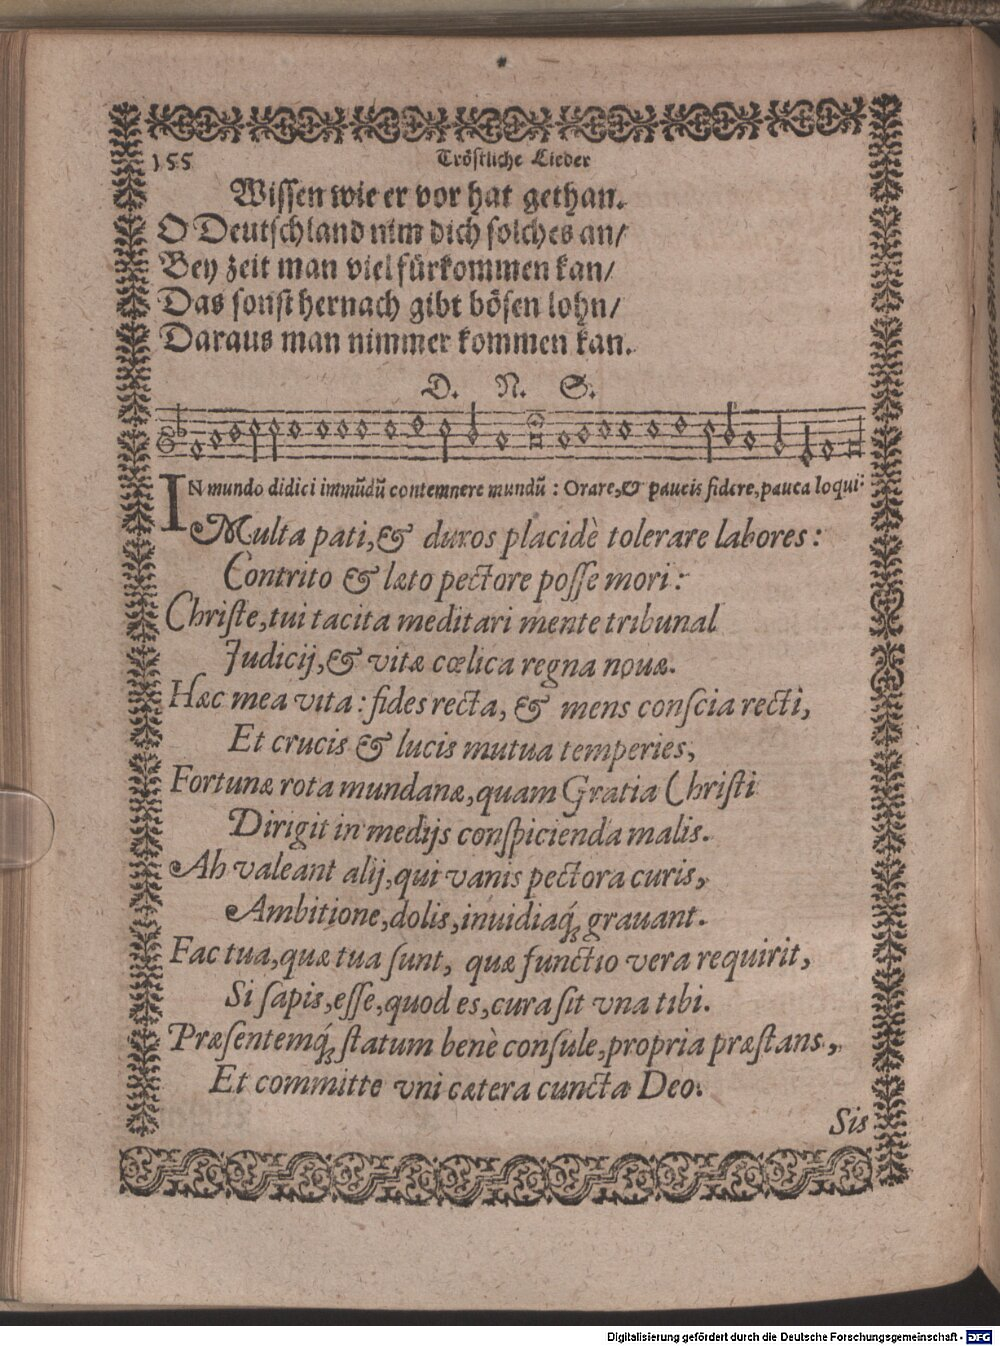 155
Tröstliche Lieder
Wissen wie er vor hat gethan.
O Deutschland nim dich solches an/
Bey zeit man viel fürkommen kan/
Das sonst hernach gibt bösen lohn/
Daraus man nimmer kommen kan.
D. N. S.
IN mundo didici immũdũ contemnere mundũ : Orare,& paucis fidere,pauca loqui:
Multa pati,& duros placidè tolerare labores :
Contrito & læto pectore posse mori :
Christe,tui tacita meditari mente tribunal
Judicij,& vitæ cœlica regna nouæ.
Hæc mea vita : fides recta, & mens conscia recti,
Et crucis & lucis mutua temperies,
Fortunæ rota mundanæ,quam Gratia Christi
Dirigit in medijs conspicienda malis.
Ah valeant alij,qui vanis pectora curis,
Ambitione,dolis,inuidiaq́; grauant.
Fac tua,quæ tua sunt, quæ functio vera requirit,
Si sapis,esse,quod es,cura sit vna tibi.
Præsentemq́; statum benè consule,propria præstans,
Et committe vni cætera cuncta Deo.
Sis
Digitalisierung gefördert durch die Deutsche Forschungsgemeinschaft - DFG